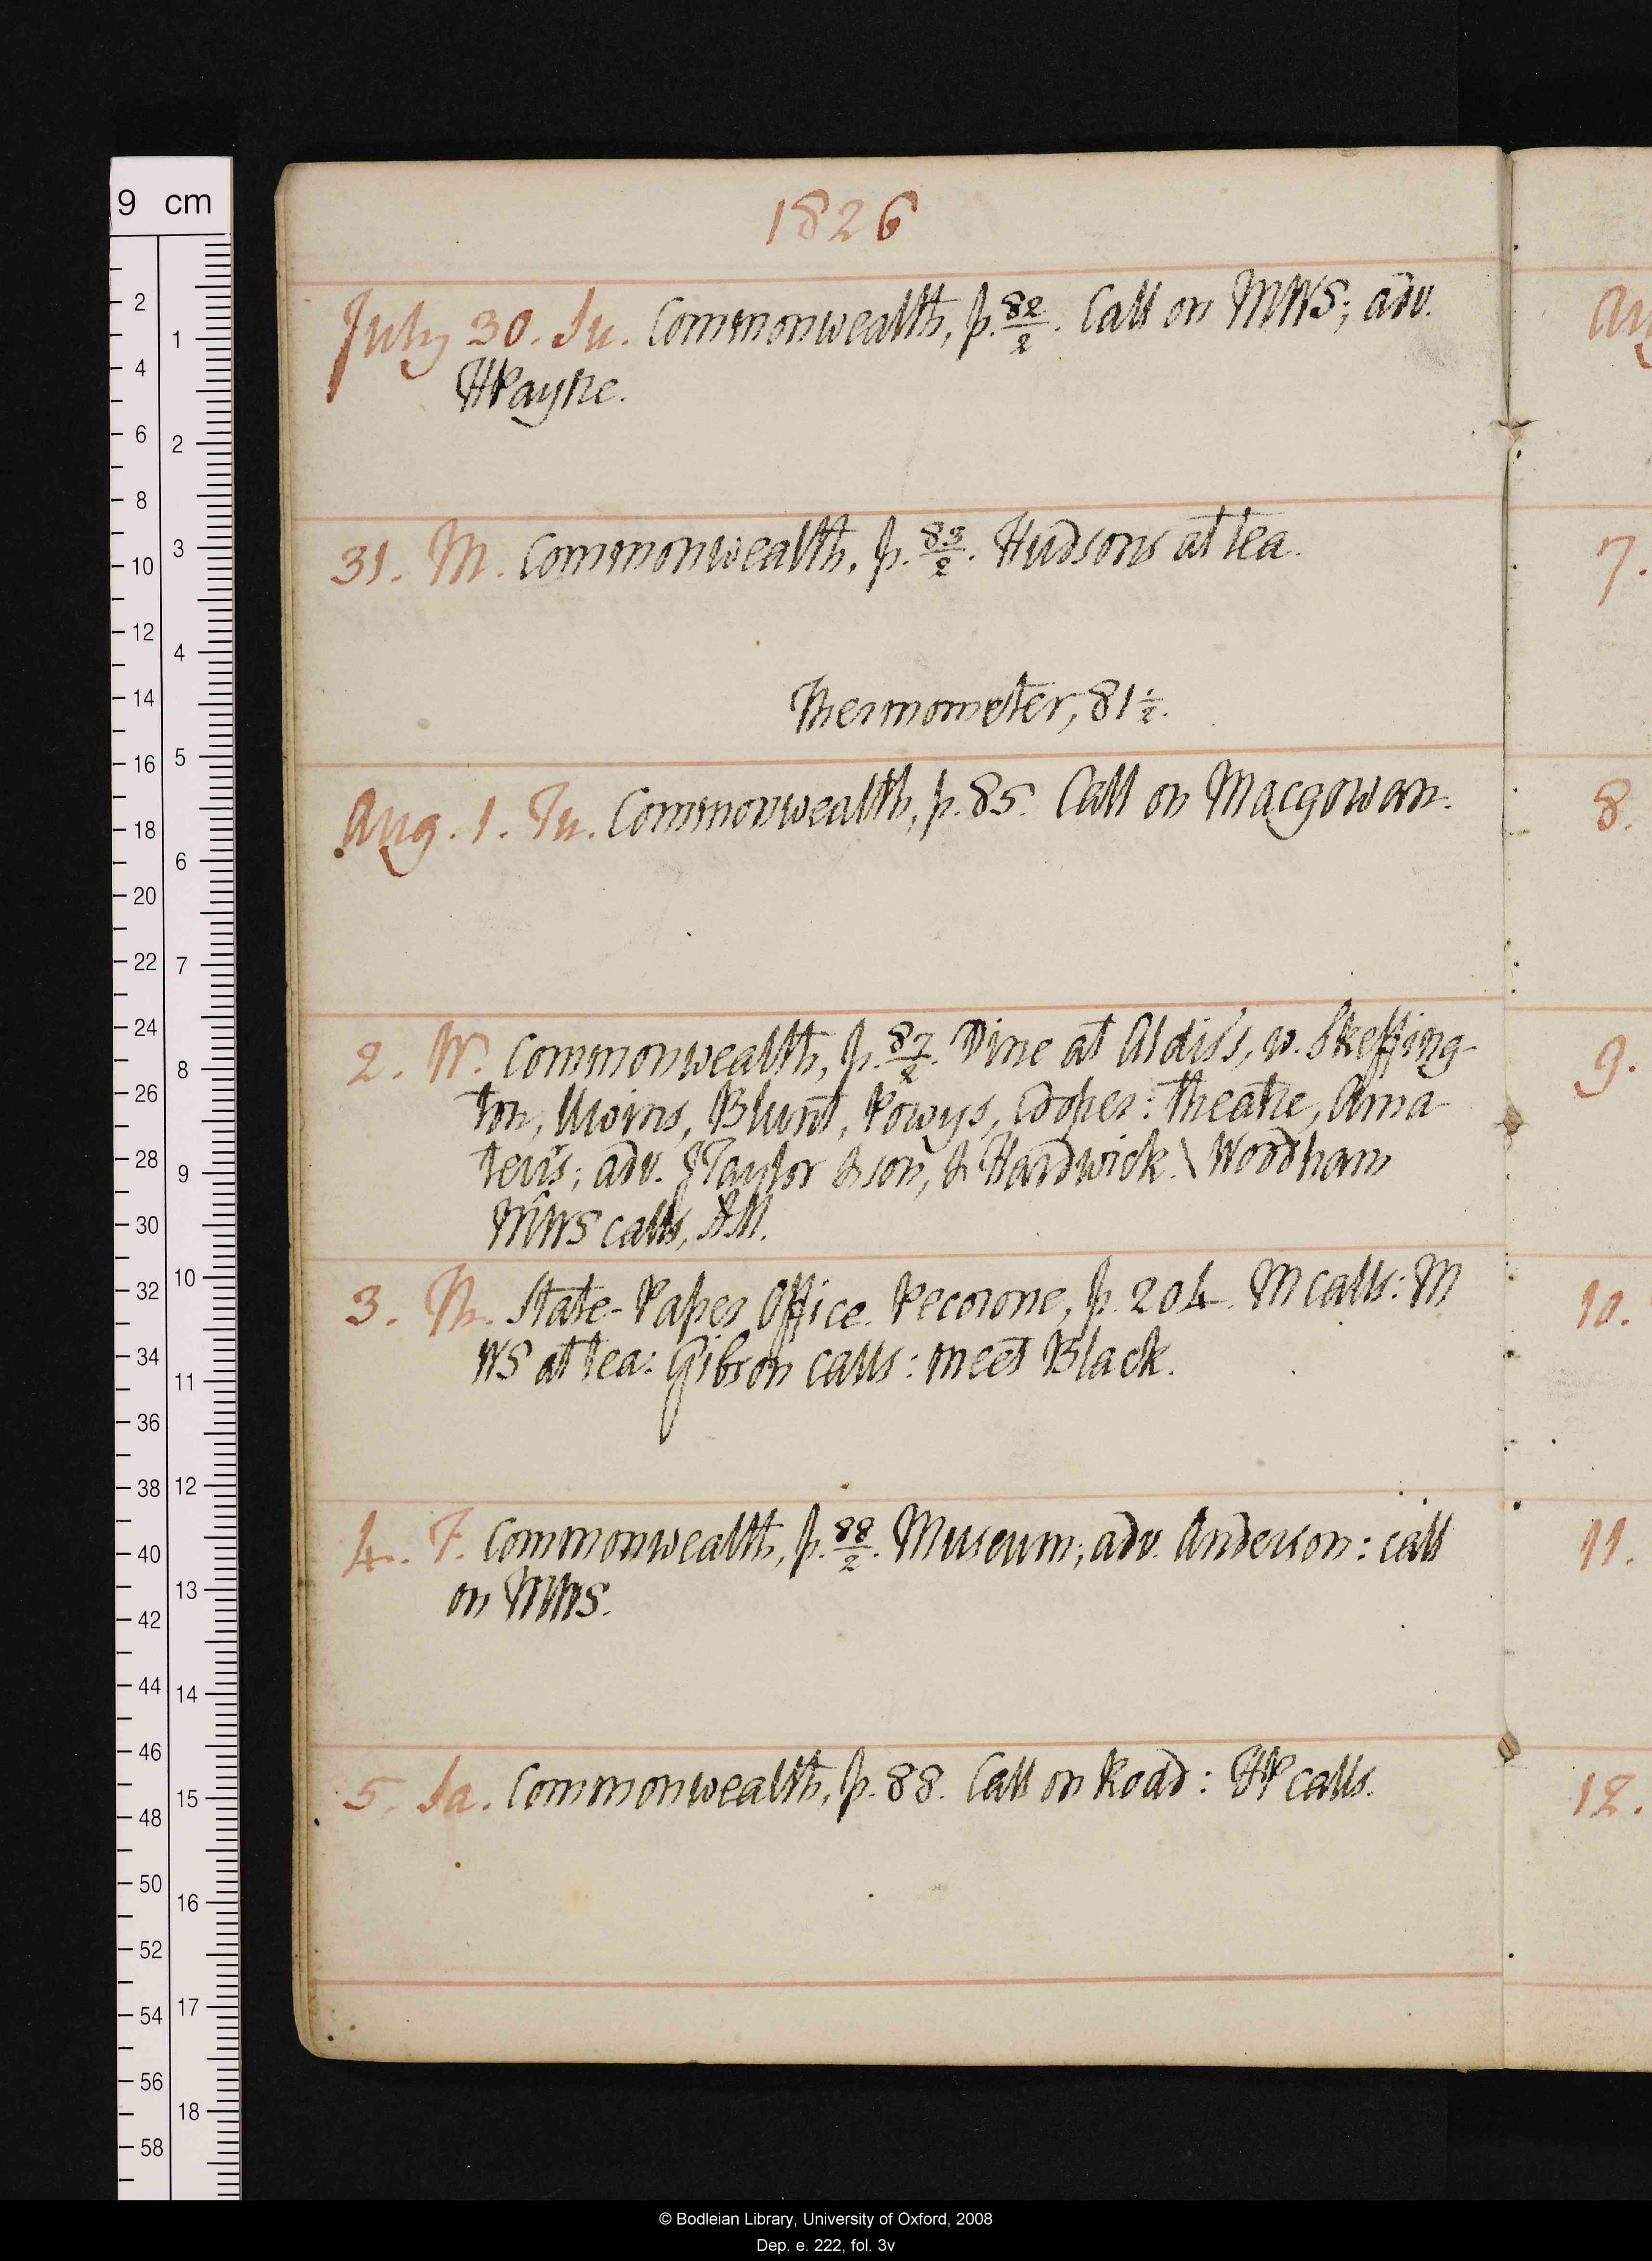 1826
July 30. Su. Commonwealth, p. 82/2. Call on MWS; adv.
HPayne.
31. M. Commonwealth, p. 83/2. Hudsons at tea.
Thermometer, 81½.
Aug. 1. Tu. Commonwealth, p. 85. Call on Macgowan.
2. W. Commonwealth, p. 87/2. Dine at Aldis's, w. Skeffing-
ton, Uwins, Blunt, Powys, Cooper: theatre, Ama-
teurs; adv. JTaylor & son, & Hardwick. \ Woodham
MWS calls,
3. Th. State-Paper Office. Pecorone, p. 204. M calls: M
WS at tea: Gibson calls: meet Black.
4. F. Commonwealth, p. 88/2. Museum; adv. Anderson: call
on MWS.
5. Sa. Commonwealth, p. 88. Call on Road: HP calls.
Au
7.
8.
9.
10.
11.
12.
9 cm
2
4
6
8
10
12
14
16
18
20
22
24
26
28
30
32
34
36
38
40
42
44
46
48
50
52
54
56
58
1
2
3
4
5
6
7
8
9
10
11
12
13
14
15
16
17
18
© Bodleian Library, University of Oxford, 2008
Dep. e. 222, fol. 3v